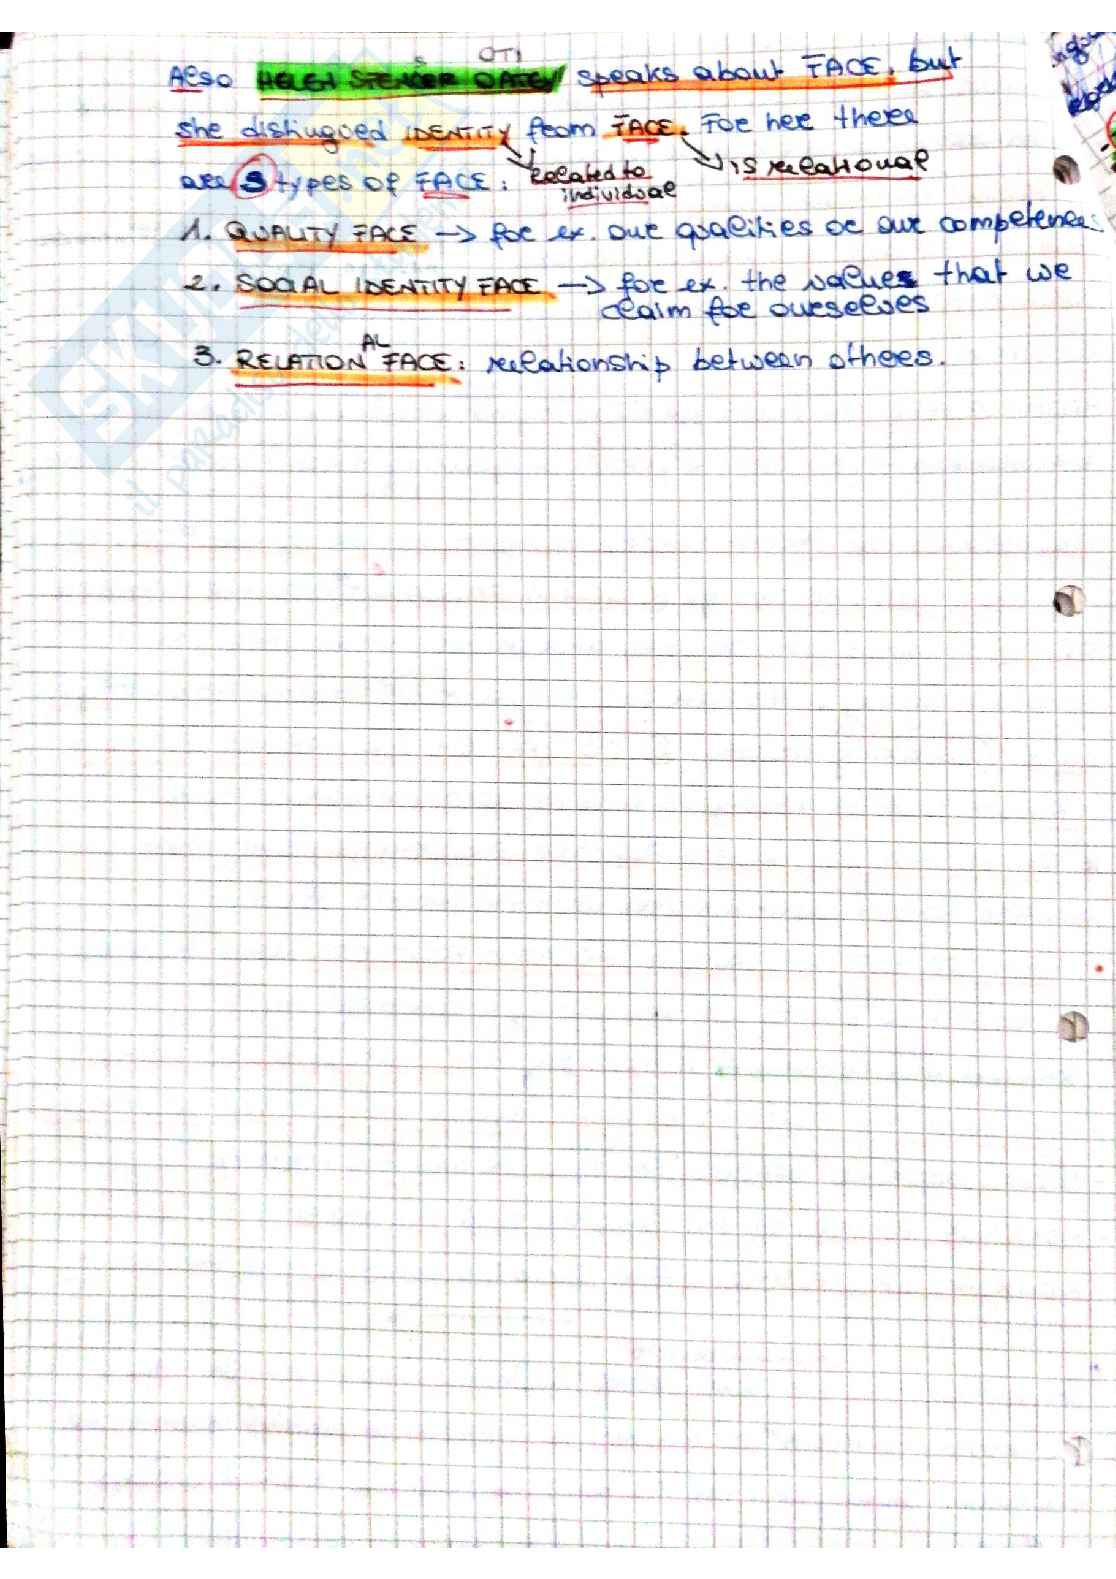 Also HELEN SPENCER OATEY speaks about FACE, but
S OTI
she distingued IDENTITY from FACE. For her there
are 3 types of FACE: related to individual is relational
1. QUALITY FACE → for ex. our qualities or our competence.
2. SOCIAL IDENTITY FACE → for ex. the values that we
claim for ourselves
3. RELATIONAL FACE: relationship between others.
SKUOLA
il paradiso